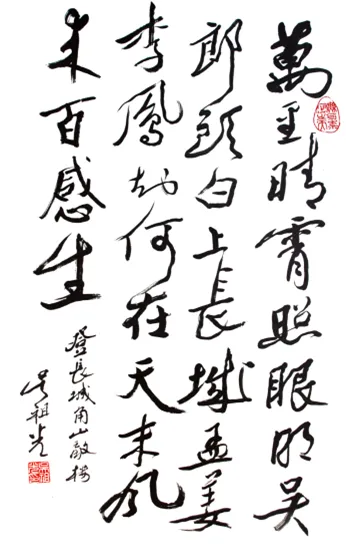 萬里晴霄照眼明吴
郎頭白上長城孟姜
李鳳知何在天末風
来百感生
登長城角山敵楼
吴祖光